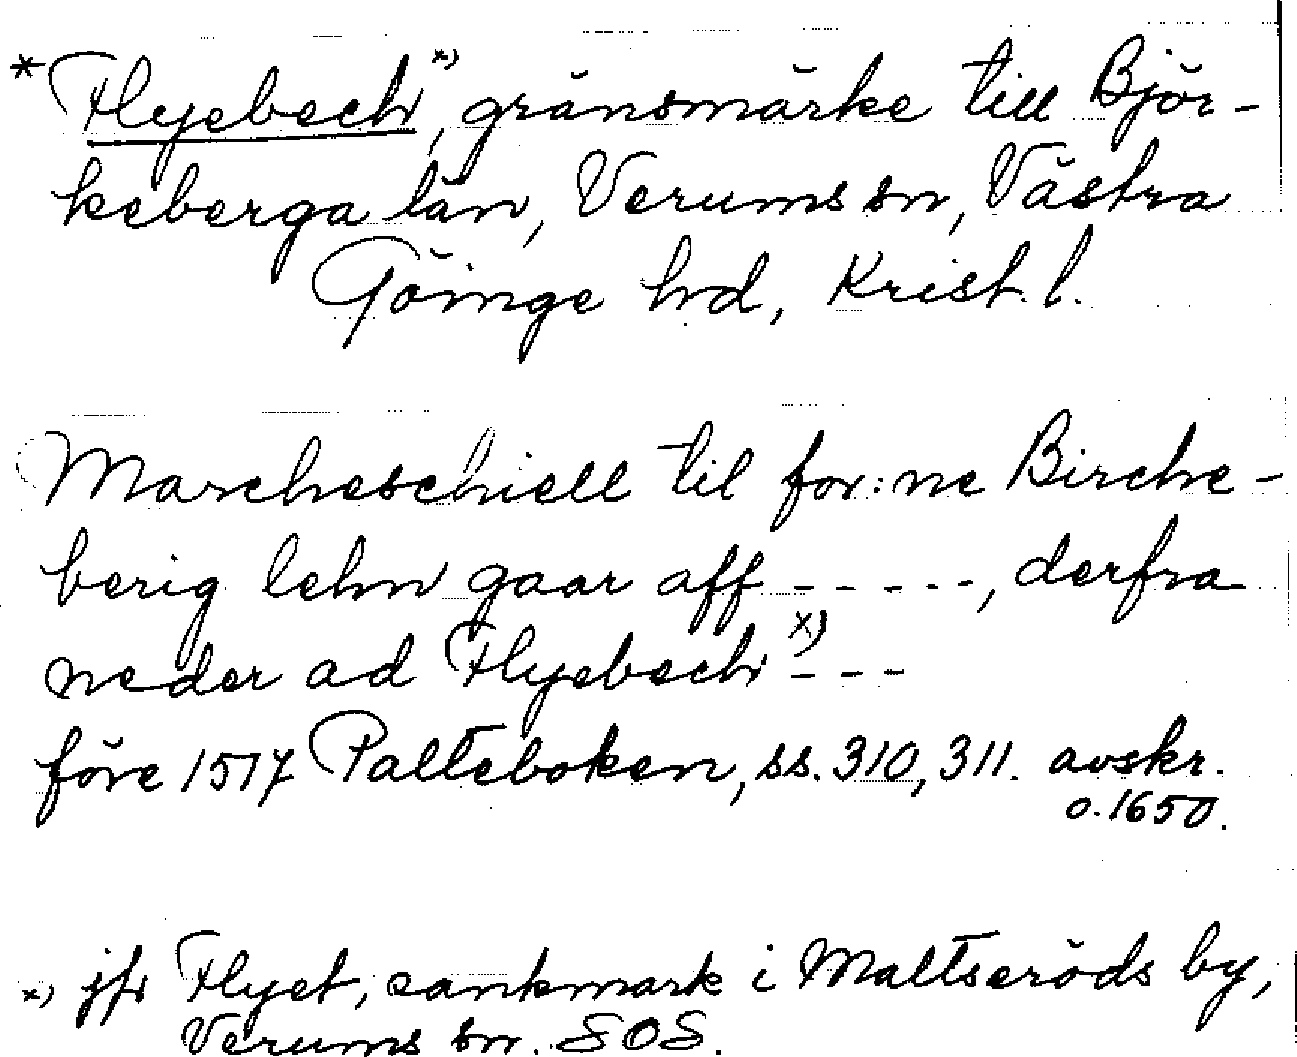 * Flyebech x), gränsmärke till Björ-
keberga län, Verums sn, Västra
Göinge hd, Krist. l.
Marcheschiell til for:ne Birche-
berig lehn gaar aff - - - - -, derfra
neder ad Flyebech x) - - -
före 1517 Palteboken, ss. 310, 311. avskr.
o. 1650.
x) jfr Flyet, sankmark i Maltseröds by,
Verums sn. SOS.